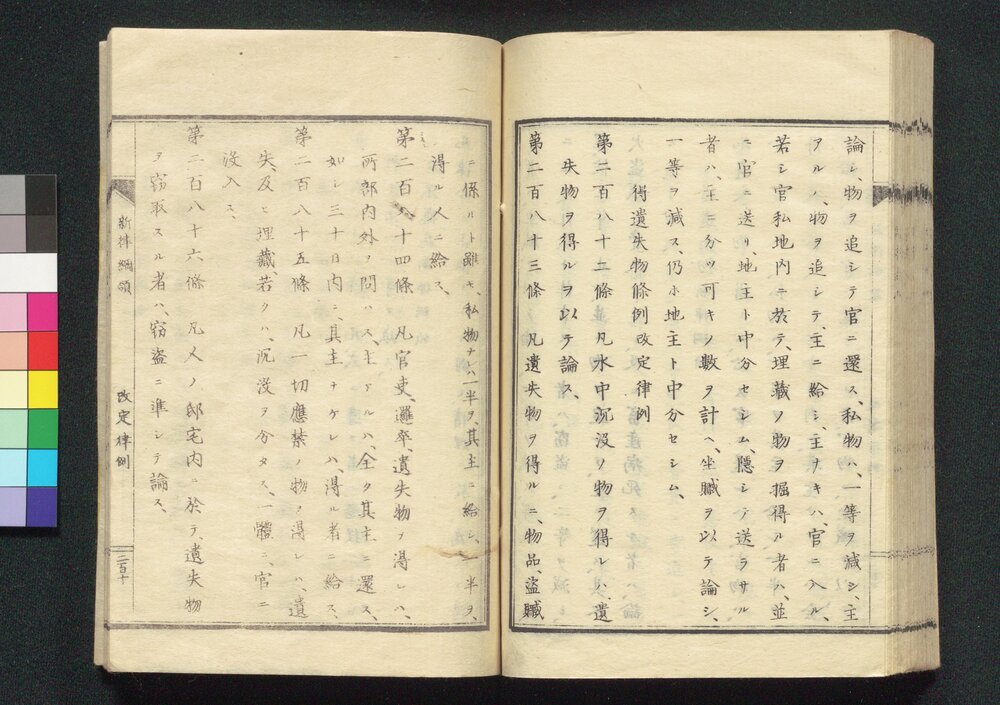 論シ、物ヲ追シテ官ニ還ス、私物ハ、一等ヲ減シ、主
アルハ、物ヲ追シテ、主ニ給シ、主ナキハ、官ニ入ル、
若シ官私地内ニ於テ、埋藏ノ物ヲ掘得ル者ハ、並
ニ官ニ送リ、地主ト中分セシム、隱シテ送ラサル
者ハ、主ニ分ツ可キノ數ヲ計ヘ、坐贓ヲ以テ論シ、
一等ヲ減ス、仍ホ地主ト中分セシム、
得遺失物條例改定律例
第二百八十二條 凡水中沉没ノ物ヲ得レハ、遺
失物ヲ得ルヲ以テ論ス、
第二百八十三條 凡遺失物ヲ得ルニ、物品、盜贓
ニ係ルト雖モ、私物ナレハ一半ヲ、其主ニ給シ、一半ヲ、
得ル人ニ給ス、
第二百八十四條 凡官吏、邏卒、遺失物ヲ得レハ、
所部内外ヲ問ハス、主アルハ、全ク其主ニ還ス、
如シ三十日内ニ、其主ナケレハ、得ル者ニ給ス、
第二百八十五條 凡一切應禁ノ物ヲ得レハ、遺
失、及ヒ埋藏、若クハ、沉没ヲ分タス、一體ニ、官ニ
没入ス、
第二百八十六條 凡人ノ邸宅内ニ於テ、遺失物
ヲ竊取スル者ハ、竊盜ニ準シテ論ス、
新律綱領
改定律例
二百十